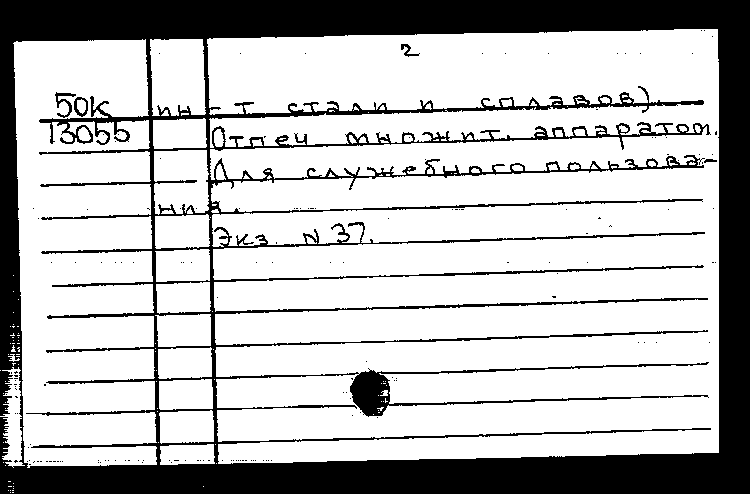 2
50к ин-т стали и сплавов).
13055 Отпеч множит. аппаратом.
Для служебного пользова-
ния.
Экз N 37.